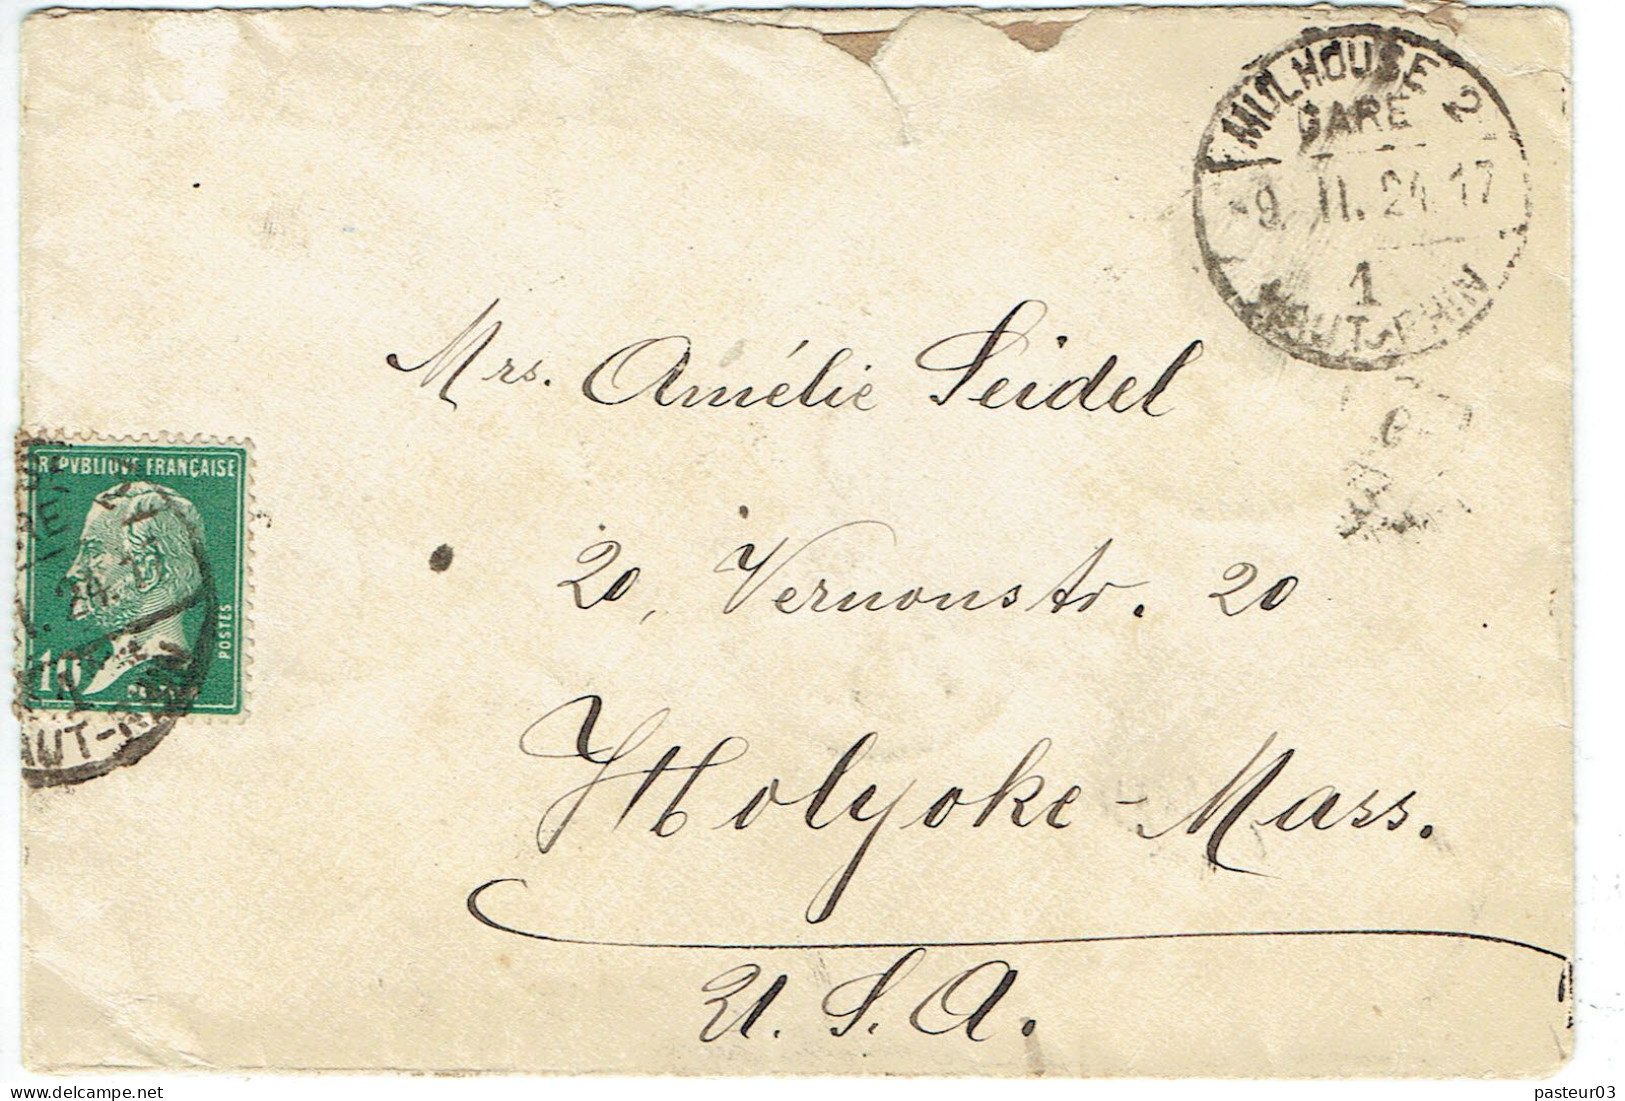 MULHOUSE 2
GARE
9. II. 24. 17
1
HAUT-RHIN
Mrs. Amélie Seidel
REPVBLIQUE FRANÇAISE
24.
POSTES
10
AUT-RHIN
20, Vernonstr. 20
Holyoke - Mass.
U.S.A.
pasteur03